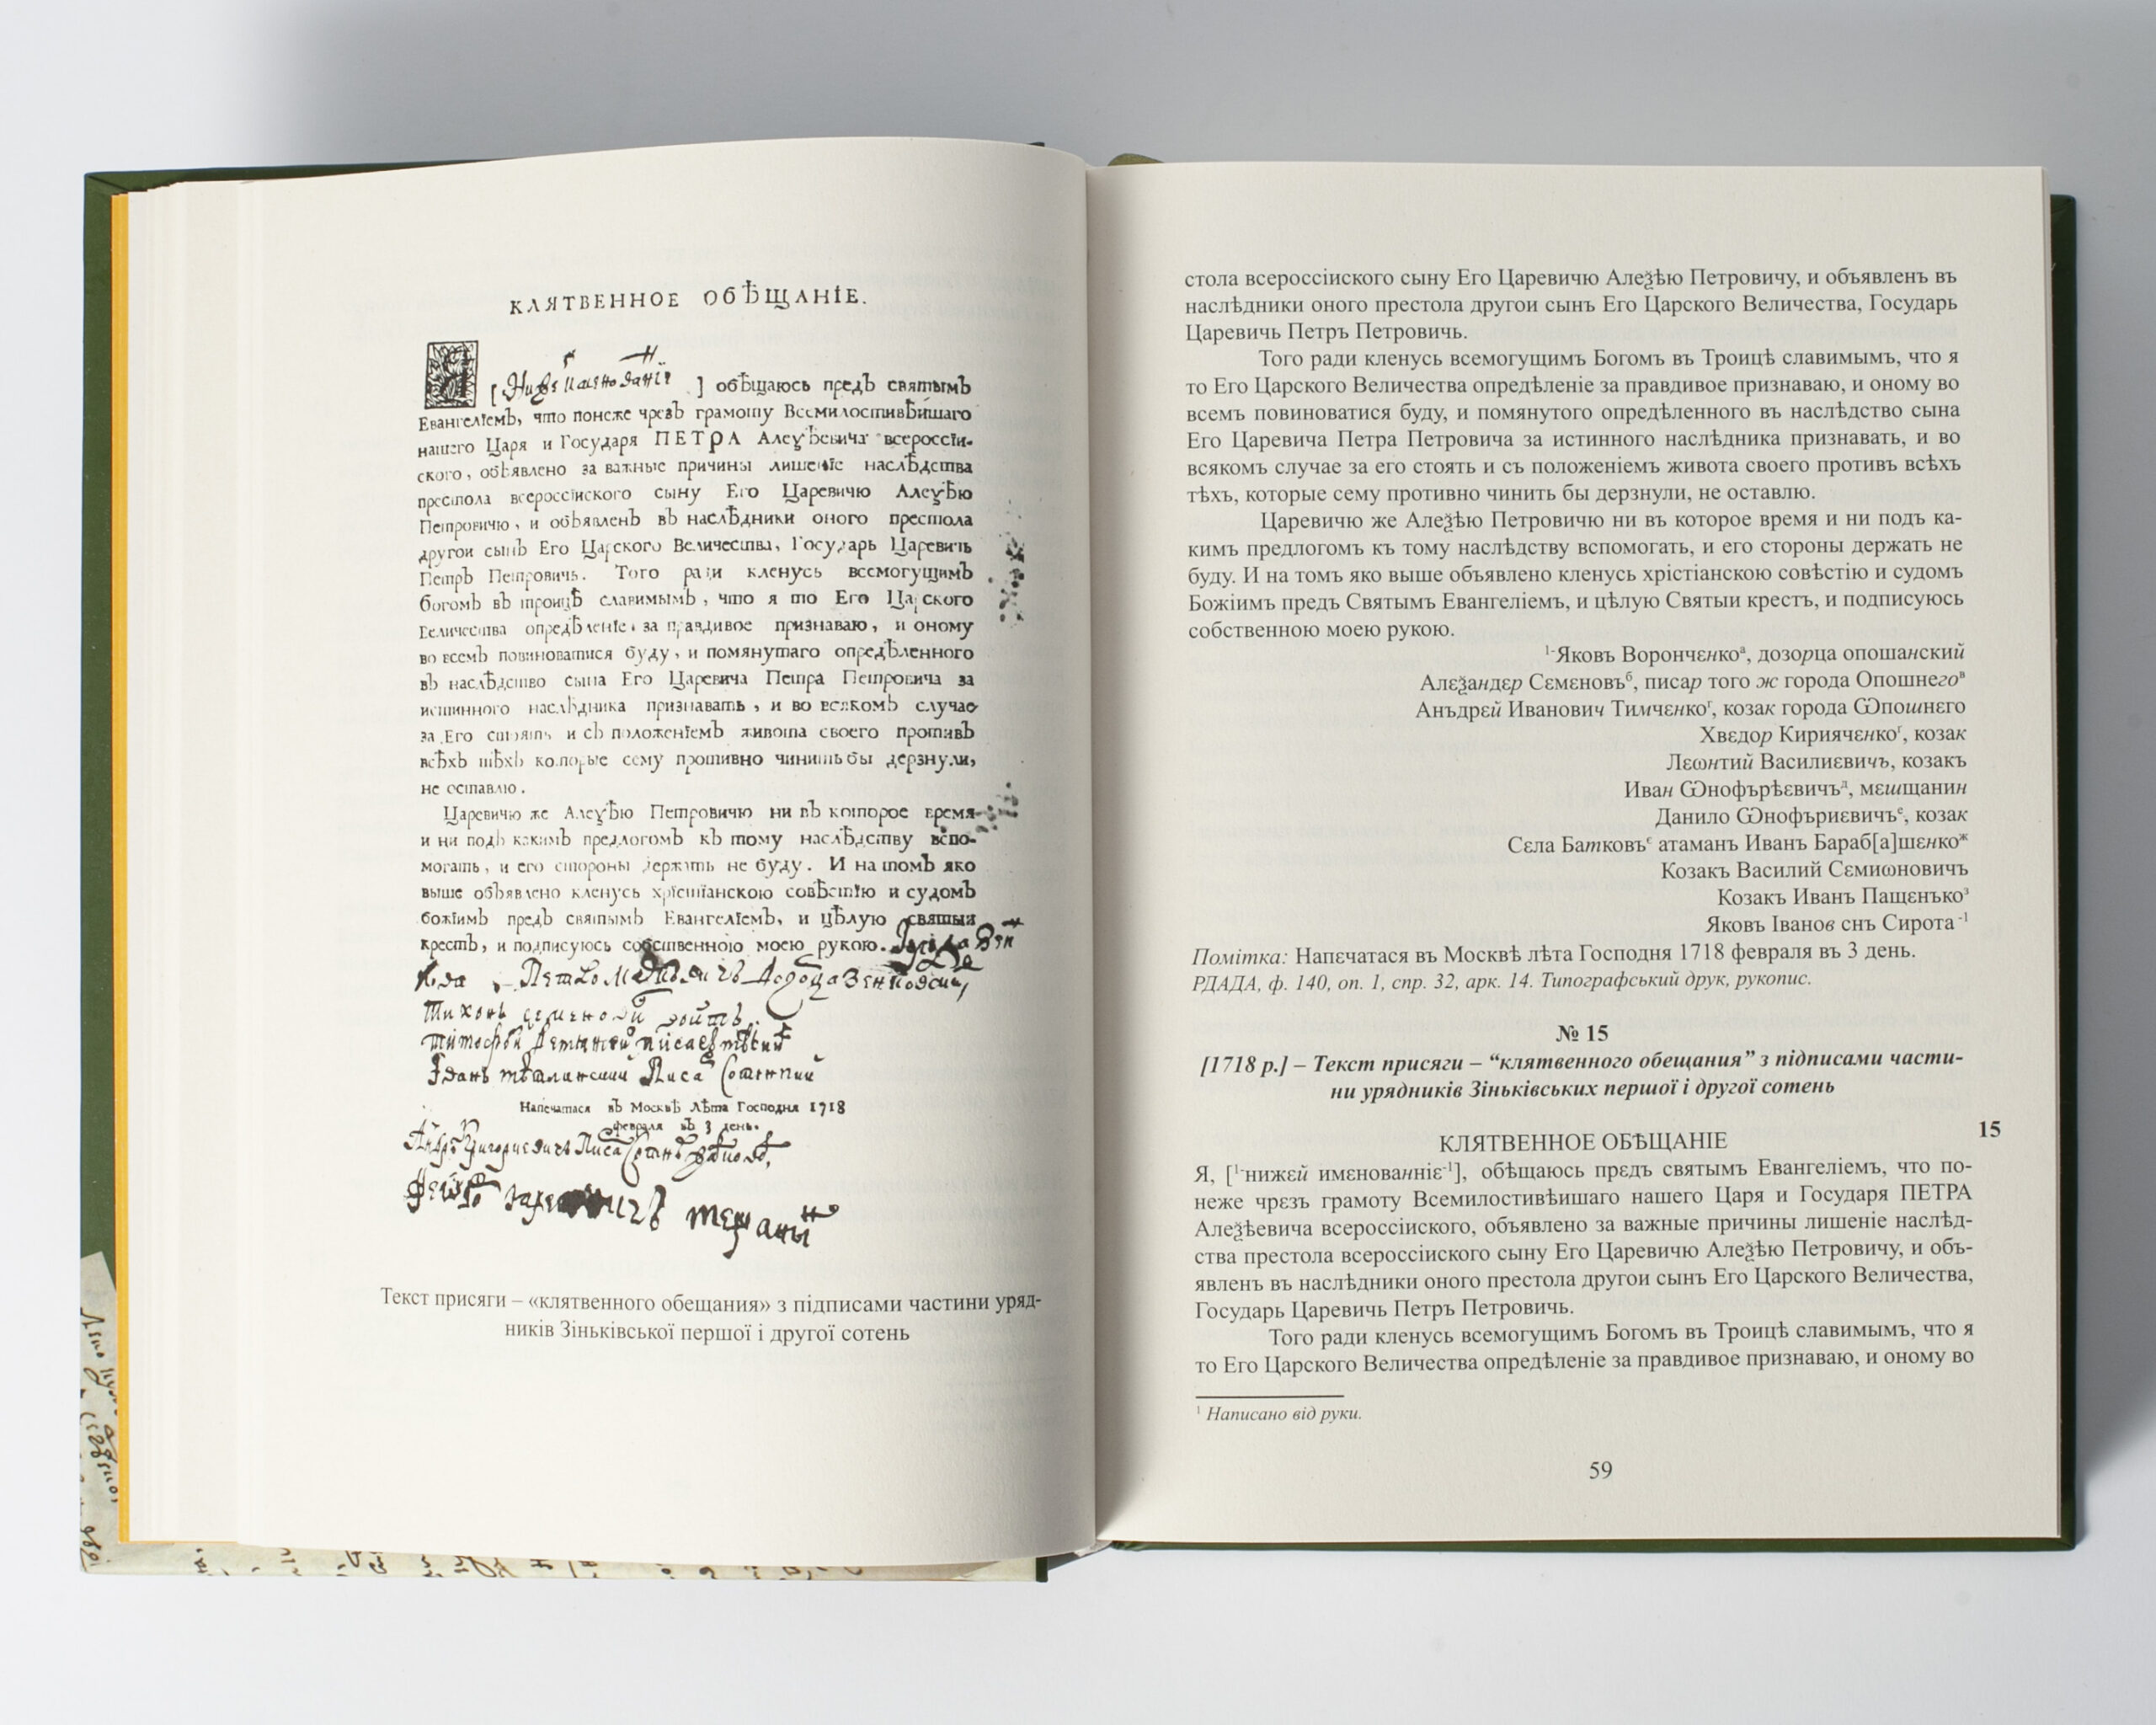 КЛЯТВЕННОЕ ОБѢЩАНІЕ.
Я [ ] обѣщаюсь предъ святымъ
Евангелїемъ, что понеже чрезъ грамоту Всемилостивѣишаго
нашего Царя и Государя ПЕТРА Алеѯѣевича всероссїи-
ского, объявлено за важные причины лишенїе наслѣдства
престола всероссїиского сыну Его Царевичю Алеѯѣю
Петровичю, и объявленъ въ наслѣдники оного престола
другои сынъ Его Царского Величества, Государь Царевичь
Петръ Петровичь. Того ради кленусь всемогущимъ
богомъ въ троицѣ славимымъ, что я то Его Царского
Величества опредѣленїе за правдивое признаваю, и оному
во всемъ повиноватися буду, и помянутаго опредѣленного
въ наслѣдство сына Его Царевича Петра Петровича за
истинного наслѣдника признавать, и во всякомъ случае
за Его стоять и съ положенїемъ живота своего противъ
всѣхъ тѣхъ которые сему противно чинить бы дерзнули,
не оставлю.
Царевичю же Алеѯѣю Петровичю ни въ которое время
и ни подъ какимъ предлогомъ къ тому наслѣдству вспо-
могать, и его стороны держать не буду. И на томъ яко
выше объявлено кленусь хрїстїанскою совѣстїю и судомъ
божїимъ предъ святымъ Евангелїемъ, и цѣлую святыи
крестъ, и подписуюсь собственною моею рукою.
Напечатася въ Москвѣ лѣта Господня 1718
февраля въ 3 день.
Текст присяги – «клятвенного обещания» з підписами частини уряд-
ників Зіньківської першої і другої сотень
стола всероссіиского сыну Его Царевичю Алеѯѣю Петровичу, и объявленъ въ
наслѣдники оного престола другои сынъ Его Царского Величества, Государь
Царевичь Петръ Петровичь.
Того ради кленусь всемогущимъ Богомъ въ Троицѣ славимымъ, что я
то Его Царского Величества опредѣленіе за правдивое признаваю, и оному во
всемъ повиноватися буду, и помянутого опредѣленного въ наслѣдство сына
Его Царевича Петра Петровича за истинного наслѣдника признавать, и во
всякомъ случае за его стоять и съ положеніемъ живота своего противъ всѣхъ
тѣхъ, которые сему противно чинить бы дерзнули, не оставлю.
Царевичю же Алеѯѣю Петровичю ни въ которое время и ни подъ ка-
кимъ предлогомъ къ тому наслѣдству вспомогать, и его стороны держать не
буду. И на томъ яко выше объявлено кленусь хрістіанскою совѣстію и судомъ
Божіимъ предъ Святымъ Евангеліемъ, и цѣлую Святыи крестъ, и подписуюсь
собственною моею рукою.
¹⁻Яковъ Ворончєнкоᵃ, дозорца опошанский
Алєѯандєр Сємєновъᵇ, писар того ж города Опошнегоᵛ
Анъдрєй Иванович Тимчєнкоᵍ, козак города Ѿпошнєго
Хвєдор Кириячєнкоґ, козак
Лєѡнтий Василиєвичъ, козакъ
Иван Ѿнофърѣєвичъд, мєшщанин
Данило Ѿнофъриєвичъе, козак
Сєла Батковъє атаманъ Иванъ Бараб[а]шєнкож
Козакъ Василий Сємиѡновичъ
Козакъ Иванъ Пащєнъкоз
Яковъ Іванов снъ Сирота⁻¹
Помітка: Напєчатася въ Москвѣ лѣта Господня 1718 февраля въ 3 день.
РДАДА, ф. 140, оп. 1, спр. 32, арк. 14. Типографський друк, рукопис.
№ 15
[1718 р.] – Текст присяги – “клятвенного обещания” з підписами части-
ни урядників Зіньківських першої і другої сотень
КЛЯТВЕННОЕ ОБѢЩАНІЕ 15
Я, [¹⁻нижєй имєнованніє⁻¹], обѣщаюсь прєдъ святымъ Евангеліемъ, что по-
неже чрєзъ грамоту Всемилостивѣишаго нашего Царя и Государя ПЕТРА
Алеѯѣевича всероссіиского, объявлено за важные причины лишеніе наслѣд-
ства престола всероссіиского сыну Его Царевичю Алеѯѣю Петровичу, и объ-
явленъ въ наслѣдники оного престола другои сынъ Его Царского Величества,
Государь Царевичь Петръ Петровичь.
Того ради кленусь всемогущимъ Богомъ въ Троицѣ славимымъ, что я
то Его Царского Величества опредѣленіе за правдивое признаваю, и оному во
¹ Написано від руки.
59